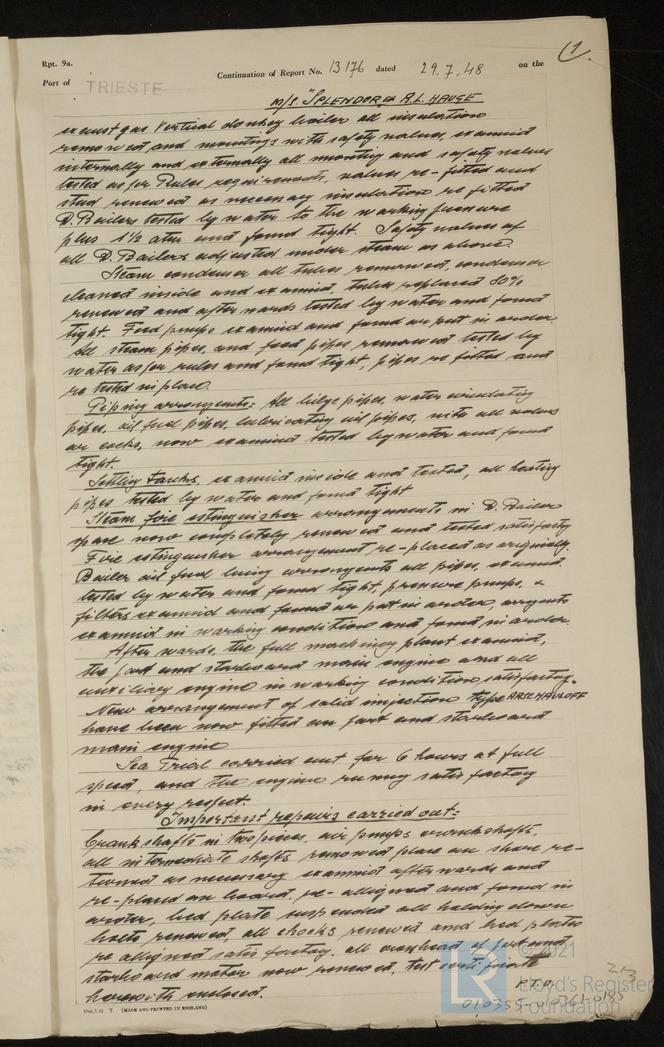 (7.
Rpt. 9a.
Port of TRIESTE
Continuation of Report No. 13176 dated 29.7.48 on the
M/S. "SPLENDOR" ex A.L. HAUGE
exaust gas Vertical donkey boiler all insulation
removed and mountings with safety valves, examined
internally and externally all mounting and safety valves
tested as per Rules requirements, valves re-fitted and
stud renewed as necessary insulation re fitted
D. Boilers tested by water to the working pressure
plus 1½ atm and found tight. Safety valves of
all D. Boilers adjusted under steam as above.
Steam condenser all tubes removed, condenser
cleaned inside and examined, tubes replaced 50%
renewed and afterwards tested by water and found
tight. Feed pumps examined and found or put in order.
All steam pipes, and feed pipes removed tested by
water as per rules and found tight, pipes re fitted and
re tested in place.
Piping arrangents:= All bilge pipes, water circulating
pipes, oil fuel pipes, lubricating oil pipes, with all valves
or cocks, now examined tested by water and found
tight.
Settling tanks, examined inside and tested, all heating
pipes tested by water and found tight
Steam fire estinguisher arrangements in D. Boiler
space now completely renewed and tested satisfactory
Fire estinguisher arrangement re-placed as originally.
Boiler oil fuel burning arrangents all pipes, examined
tested by water and found tight, pressure pumps, &
filters examined and found or put in order, arrgents
examined in working condition and found in order.
After wards, the full machinery plant examined,
the port and starboard main engine and all
auxiliary engine in working condition satisfactory.
New arrangement of solid injection type ARCHAOULOFF
have been now fitted on port and starboard
main engine
Sea Trial carried out for 6 hours at full
speed, and the engine running satisfactory
in every respect.
Important repairs carried out:=
Crank shafts in two pieces, air pumps crankshafts,
all intermediate shafts removed place on shore re-
turned as necessary examined afterwards and
re-placed on board, re-alligned and found in
order, bed plate suspended all holding down
bolts renewed, all chocks renewed and bed plates
re alligned satisfactory. all overhead of port and
starboard motor now renewed, test certificate
herewith enclosed.
P.T.O.
213
© 2021
Lloyd's Register
Foundation
010355-010361-0185
(MADE AND PRINTED IN ENGLAND)